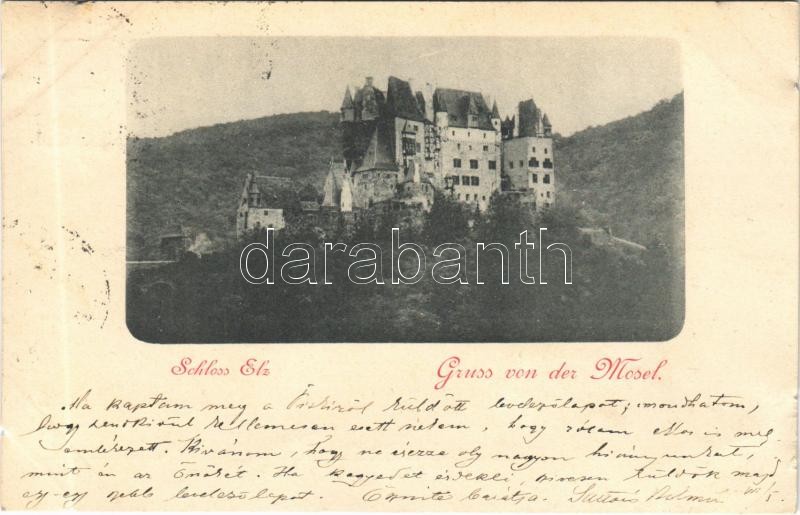 darabanth
Schloss Elz
Gruss von der Mosel.
Ma kaptam meg a küldött levelezőlapot; mondhatom,
hogy rendkívül kellemesen esett nekem, hogy rólam Ma is meg
emlékezett. Kívánom, hogy ne érezze oly nagyon hiányunkat,
mint én az Önökét. Ha kegyedet érdekli, szívesen küldök majd
egy-egy szebb levelezőlapot. Őszinte barátja.